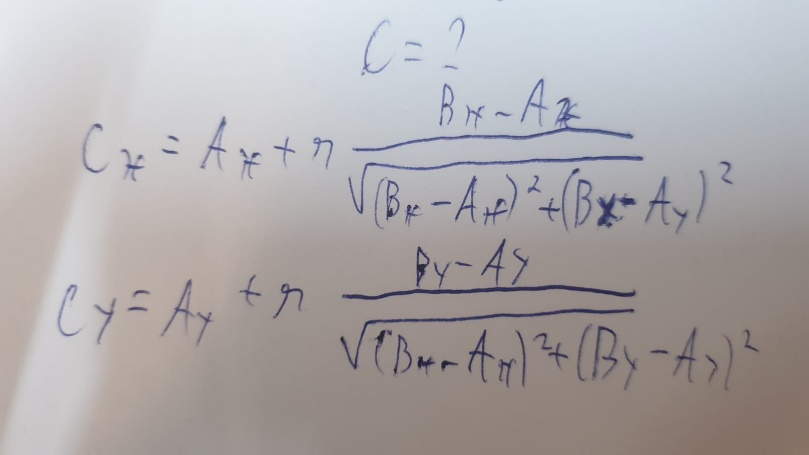 C = ?
Cx = Ax + r (Bx - Ax) / √((Bx - Ax)² + (By - Ay)²)
Cy = Ay + r (By - Ay) / √((Bx - Ax)² + (By - Ay)²)